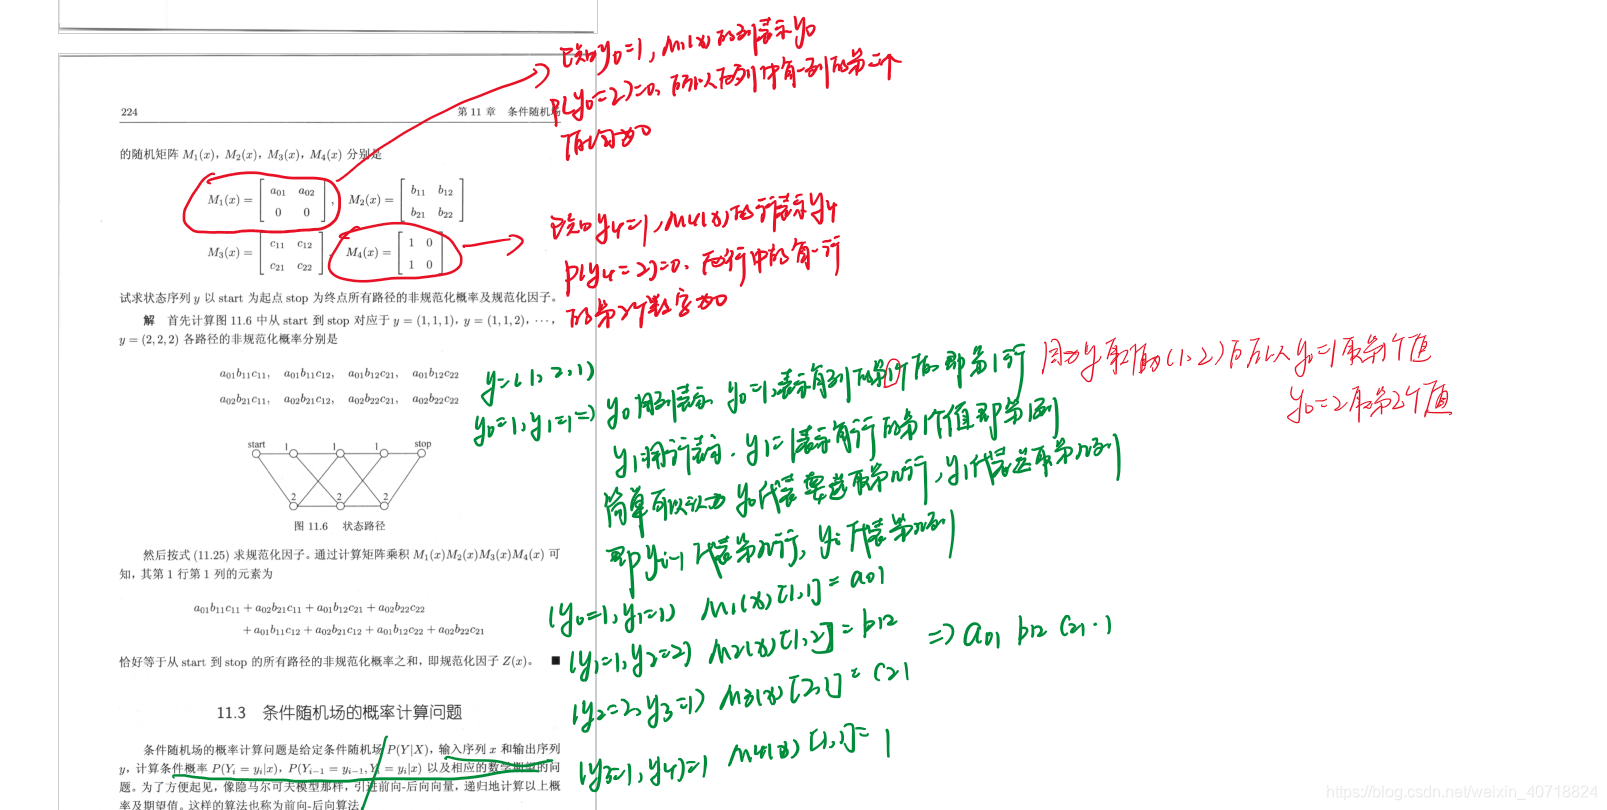 224
第 11 章 条件随机场
的随机矩阵 M₁(x), M₂(x), M₃(x), M₄(x) 分别是
M₁(x) = [ a₀₁ a₀₂ ; 0 0 ], M₂(x) = [ b₁₁ b₁₂ ; b₂₁ b₂₂ ]
M₃(x) = [ c₁₁ c₁₂ ; c₂₁ c₂₂ ], M₄(x) = [ 1 0 ; 1 0 ]
试求状态序列 y 以 start 为起点 stop 为终点所有路径的非规范化概率及规范化因子。
解 首先计算图 11.6 中从 start 到 stop 对应于 y = (1,1,1), y = (1,1,2), ···,
y = (2,2,2) 各路径的非规范化概率分别是
a₀₁b₁₁c₁₁, a₀₁b₁₁c₁₂, a₀₁b₁₂c₂₁, a₀₁b₁₂c₂₂
a₀₂b₂₁c₁₁, a₀₂b₂₁c₁₂, a₀₂b₂₂c₂₁, a₀₂b₂₂c₂₂
start 1 1 1 stop
2 2 2
图 11.6 状态路径
然后按式 (11.25) 求规范化因子。通过计算矩阵乘积 M₁(x)M₂(x)M₃(x)M₄(x) 可
知，其第 1 行第 1 列的元素为
a₀₁b₁₁c₁₁ + a₀₂b₂₁c₁₁ + a₀₁b₁₂c₂₁ + a₀₂b₂₂c₂₂
+ a₀₁b₁₁c₁₂ + a₀₂b₂₁c₁₂ + a₀₁b₁₂c₂₂ + a₀₂b₂₂c₂₁
恰好等于从 start 到 stop 的所有路径的非规范化概率之和，即规范化因子 Z(x)。 ■
11.3 条件随机场的概率计算问题
条件随机场的概率计算问题是给定条件随机场 P(Y|X)，输入序列 x 和输出序列
y，计算条件概率 P(Yᵢ = yᵢ|x), P(Yᵢ₋₁ = yᵢ₋₁, Yᵢ = yᵢ|x) 以及相应的数学期望的问
题。为了方便起见，像隐马尔可夫模型那样，引进前向-后向向量，递归地计算以上概
率及期望值。这样的算法也称为前向-后向算法
已知y₀=1, M₁(x)的列表示y₀
P(y₀=2)=0, 所以在列中每一列的第二个
值均为0
已知y₄=1, M₄(x)的行表示y₄
P(y₄=2)=0, 在行中的每一行
的第2个数字为0
y=(1,2,1)
y₀=1, y₁=1=> y₀用列表示, y₀=1,表示每列的第1个值 即第1行
因为y取值为(1,2)所以y₀=1取第1个值
y₀=2取第2个值
y₁用行表示. y₁=1表示每行的第1个值即第1列
简单可以认为 y₀代表要选取第n行, y₁代表选取第n列
即yᵢ₋₁代表第n行, yᵢ代表第n列
(y₀=1, y₁=1) M₁(x)[1,1]=a₀₁
(y₁=1, y₂=2) M₂(x)[1,2]=b₁₂ => a₀₁ b₁₂ c₂₁·1
(y₂=2, y₃=1) M₃(x)[2,1]=c₂₁
(y₃=1, y₄)=1 M₄(x)[1,1]=1
https://blog.csdn.net/weixin_40718824